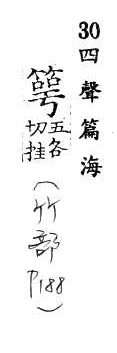 30 四聲篇海
五各
切挂
(竹部 P188)